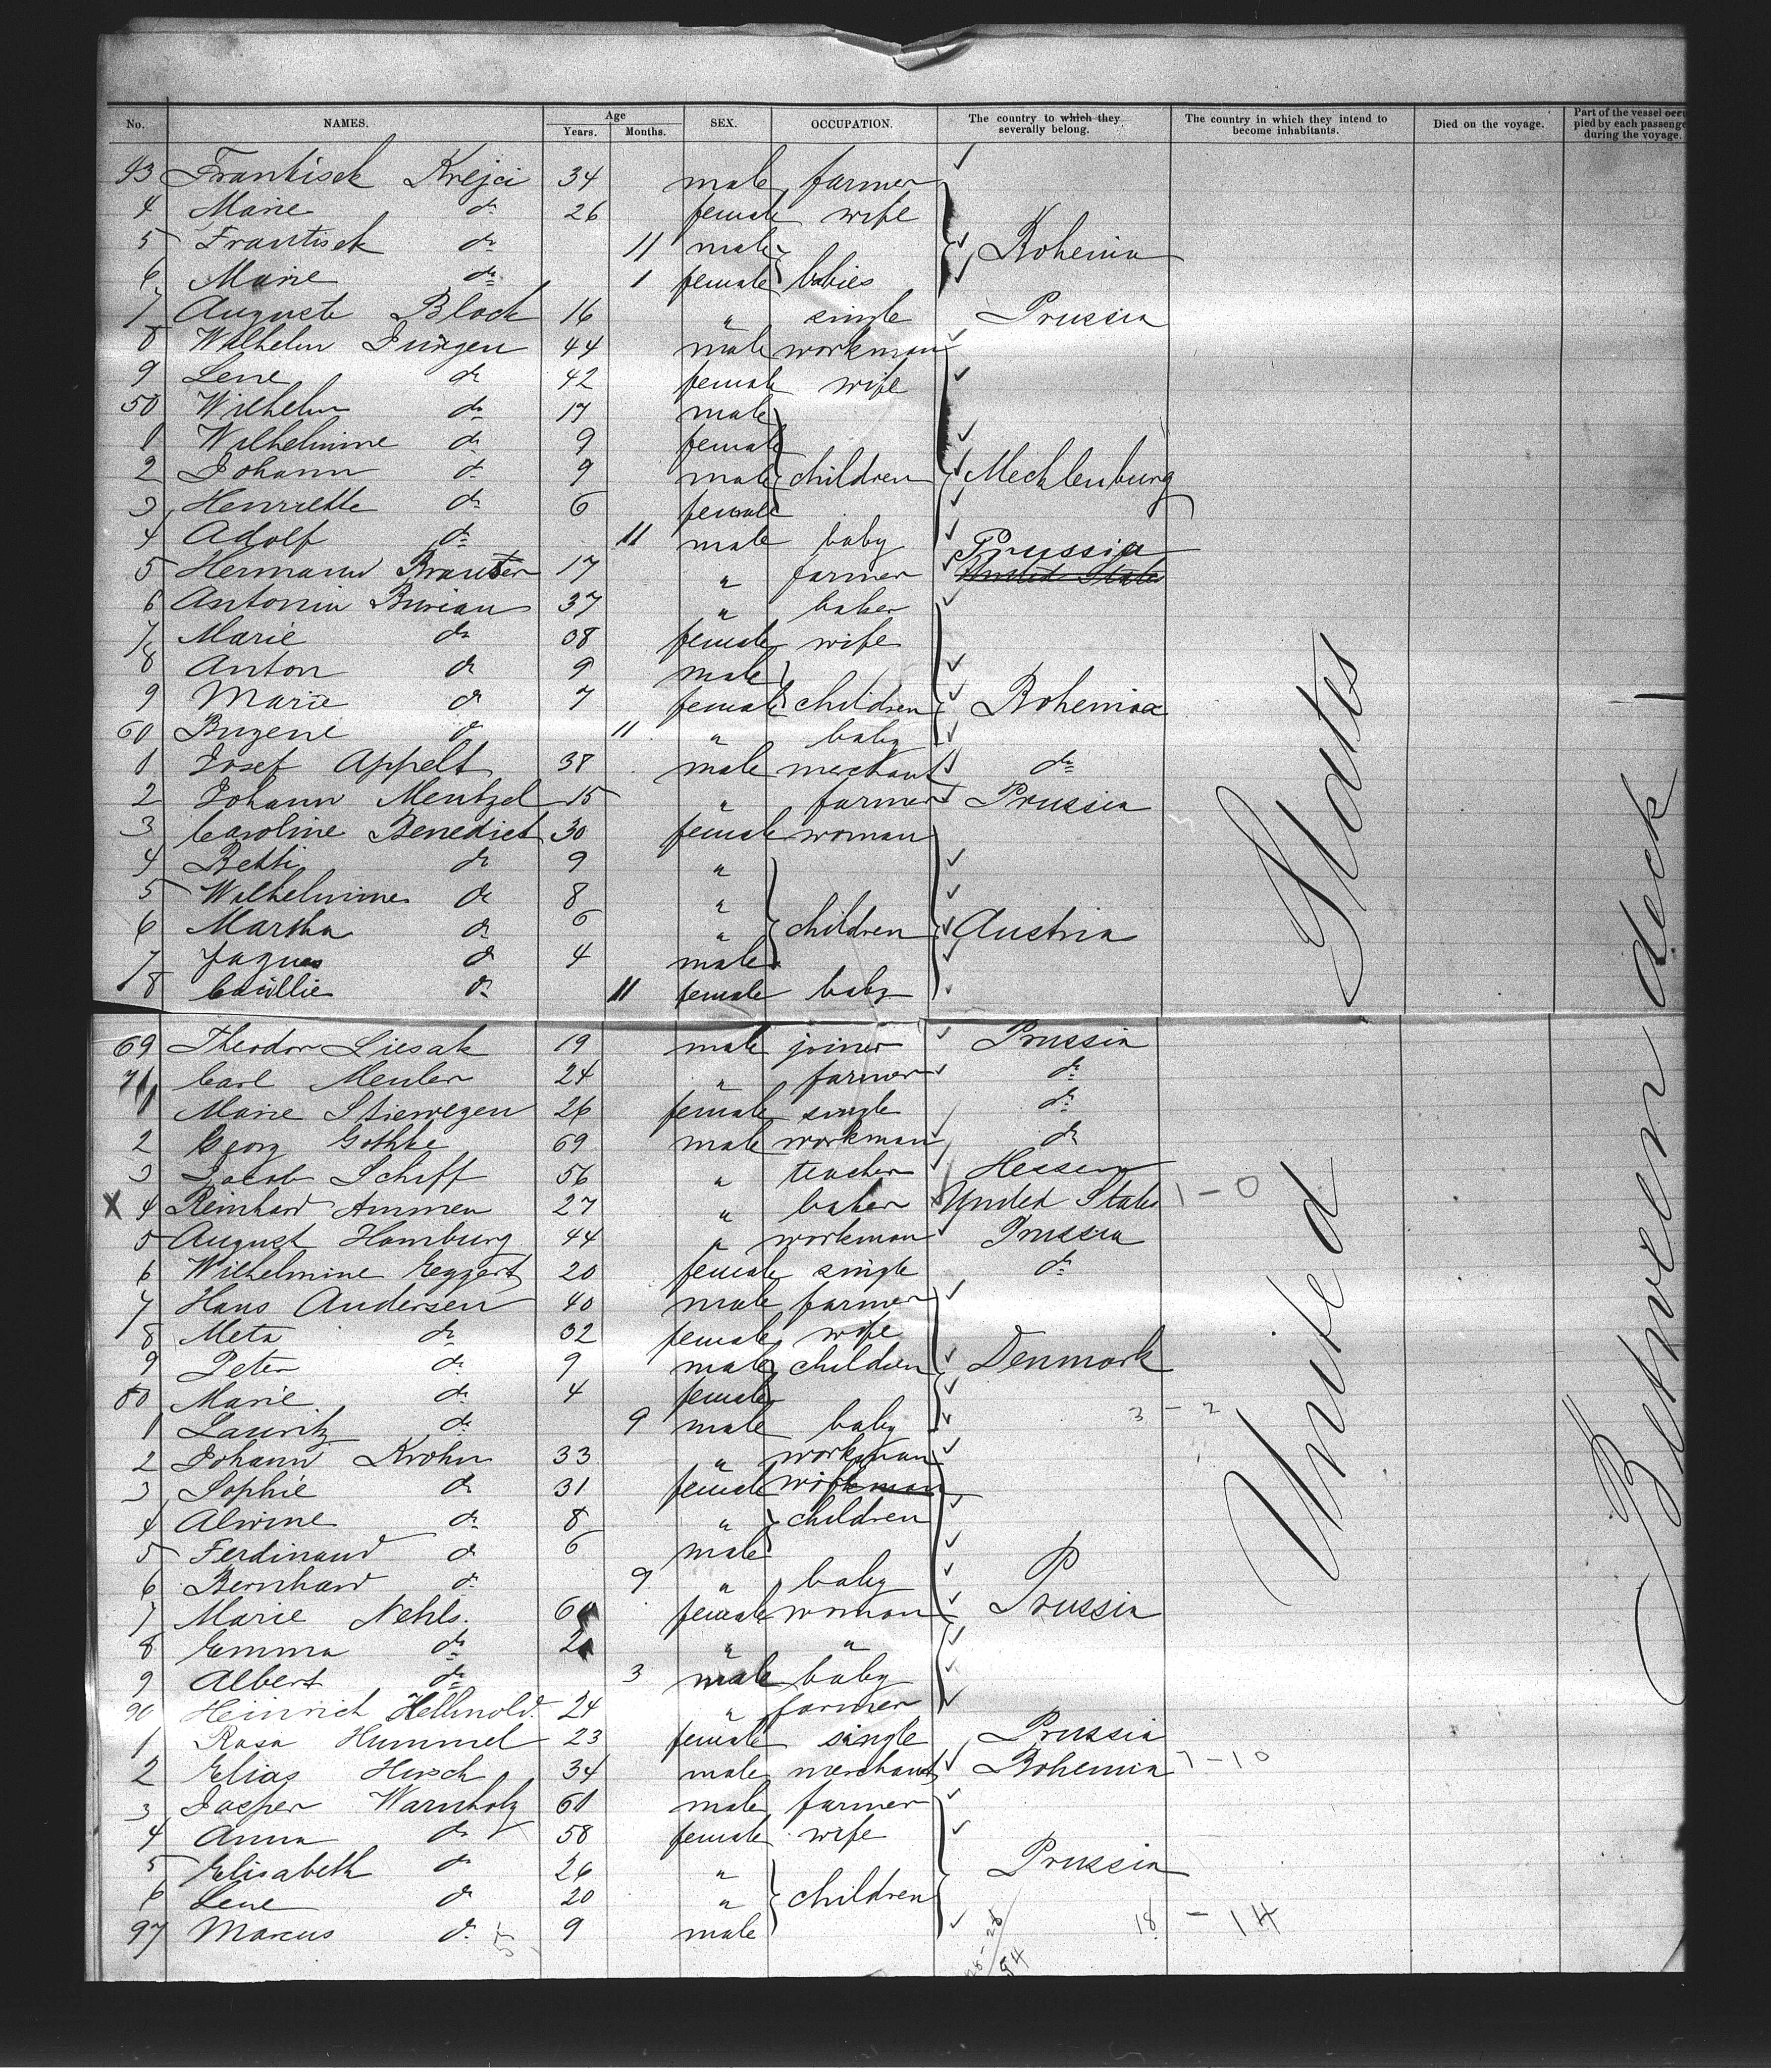 No. NAMES. Age Years. Months. SEX. OCCUPATION. The country to which they severally belong. The country in which they intend to become inhabitants. Died on the voyage. Part of the vessel occupied by each passenger during the voyage.
43 Frantisek Krejci 34 male farmer
4 Marie do 26 female wife
5 Frantisek do 11 male Bohemia
6 Marie do 1 female babies
7 Auguste Block 16 " single Prussia
8 Wilhelm Jürgen 44 male workman
9 Lene do 42 female wife
50 Wilhelm do 17 male
1 Wilhelmine do 9 female
2 Johann do 9 male children Mecklenburg
3 Henriette do 6 female
4 Adolf do 11 male baby
5 Hermann 17 " farmer Prussia United States
6 Antonin Burian 37 " baker
7 Marie do 38 female wife
8 Anton do 9 male
9 Marie do 7 female children Bohemia
60 do 11 " baby
1 Josef Appelt 38 male merchant do
2 Johann Mentzel 15 " farmer Prussia
3 Caroline Benedict 30 female woman
4 Betti do 9 "
5 Wilhelmine do 8 "
6 Martha do 6 " children Austria
7 Jaques do 4 male
8 do 11 female baby
69 Theodor Liesak 19 male joiner Prussia
Carl 24 " farmer do
1 Marie 26 female single do
2 Georg Gothke 69 male workman do
3 Jacob Schiff 56 " teacher Hessen
X 4 Reinhard Ammen 27 " baker United States 1 - 0
5 August Homburg 44 " workman Prussia
6 Wilhelmine Eggert 20 female single do
7 Hans Andersen 40 male farmer
8 Meta do 32 female wife
9 Peter do 9 male children Denmark
80 Marie do 4 female
1 Lauritz do 9 male baby 3 - 2
2 Johann Krohn 33 " workman
3 Sophie do 31 female
4 Alwine do 8 " children
5 Ferdinand do 6 male
6 Bernhard do 9 " baby
7 Marie Nehls. female woman Prussia
8 Emma do " "
9 Albert do 3 male baby
90 Heinrich Hellmold. 24 " farmer
1 Rosa Hummel 23 female single Prussia
2 Elias Hirsch 34 male merchant Bohemia 7 - 10
3 Jasper Warnholz 61 male farmer
4 Anna do 58 female wife
5 Elisabeth do 26 " Prussia
6 Lene do 20 " children
97 Marcus do 9 male 18 - 14
United States
Between deck